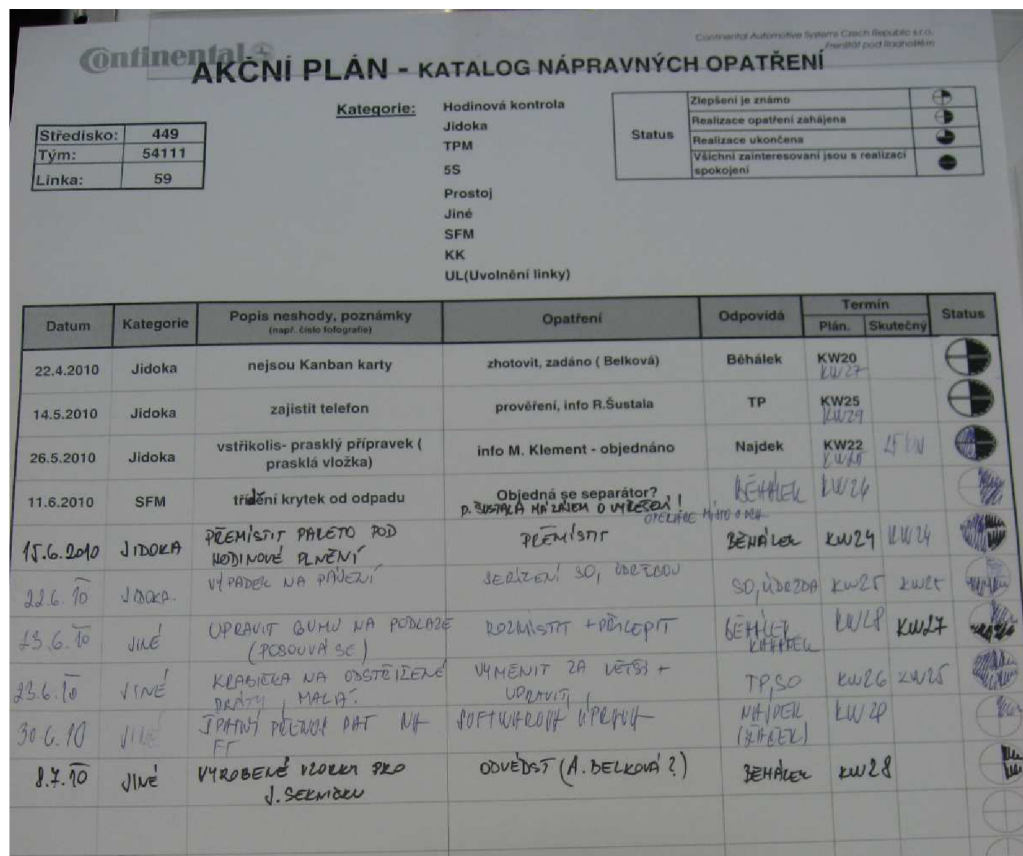 Continental
Continental Automotive Systems Czech Republic s.r.o.
Frenštát pod Radhoštěm
AKČNÍ PLÁN - KATALOG NÁPRAVNÝCH OPATŘENÍ
Středisko: 449
Tým: 54111
Linka: 59
Kategorie:
Hodinová kontrola
Jidoka
TPM
5S
Prostoj
Jiné
SFM
KK
UL(Uvolnění linky)
Status
Zlepšení je známo
Realizace opatření zahájena
Realizace ukončena
Všichni zainteresovaní jsou s realizací
spokojení
Datum Kategorie Popis neshody, poznámky Opatření Odpovídá Termín Status
(např. číslo fotografie) Plán. Skutečný
22.4.2010 Jidoka nejsou Kanban karty zhotovit, zadáno ( Belková) Běhálek KW20
KW27
14.5.2010 Jidoka zajistit telefon prověření, info R.Šustala TP KW25
KW29
26.5.2010 Jidoka vstřikolis- prasklý přípravek ( info M. Klement - objednáno Najdek KW22
prasklá vložka)
11.6.2010 SFM třídění krytek od odpadu Objedná se separátor? BĚHÁLEK KW26
P. ŠUSTALA MÁ ZÁJEM O VYŘEŠENÍ!
15.6.2010 JIDOKA PŘEMÍSTIT PALETO POD PŘEMÍSTIT BĚHÁLEK KW24 KW24
HODINOVÉ PLNĚNÍ
22.6.10 JIDOKA. VÝPADEK NA PÁJENÍ SEŘÍZENÍ SO, ÚDRŽBOU SO, ÚDRŽBA KW25 KW25
23.6.10 JINÉ UPRAVIT GUMU NA PODLAZE ROZMÍSTIT + PŘILEPIT BĚHÁLEK KW28 KW27
(POSOUVÁ SE)
23.6.10 JINÉ KRABIČKA NA ODSTŘIŽENÉ VYMĚNIT ZA VĚTŠÍ + TP, SO KW26 KW25
DRÁTY, MALÁ. UPRAVIT
30.6.10 JINÉ ŠPATNÝ PŘENOS DAT NA SOFTWAROVÁ ÚPRAVA NAJDEK
FT
8.7.10 JINÉ VYROBENÉ VZORKY PRO ODVÉDST (A. BELKOVÁ?) BĚHÁLEK KW28